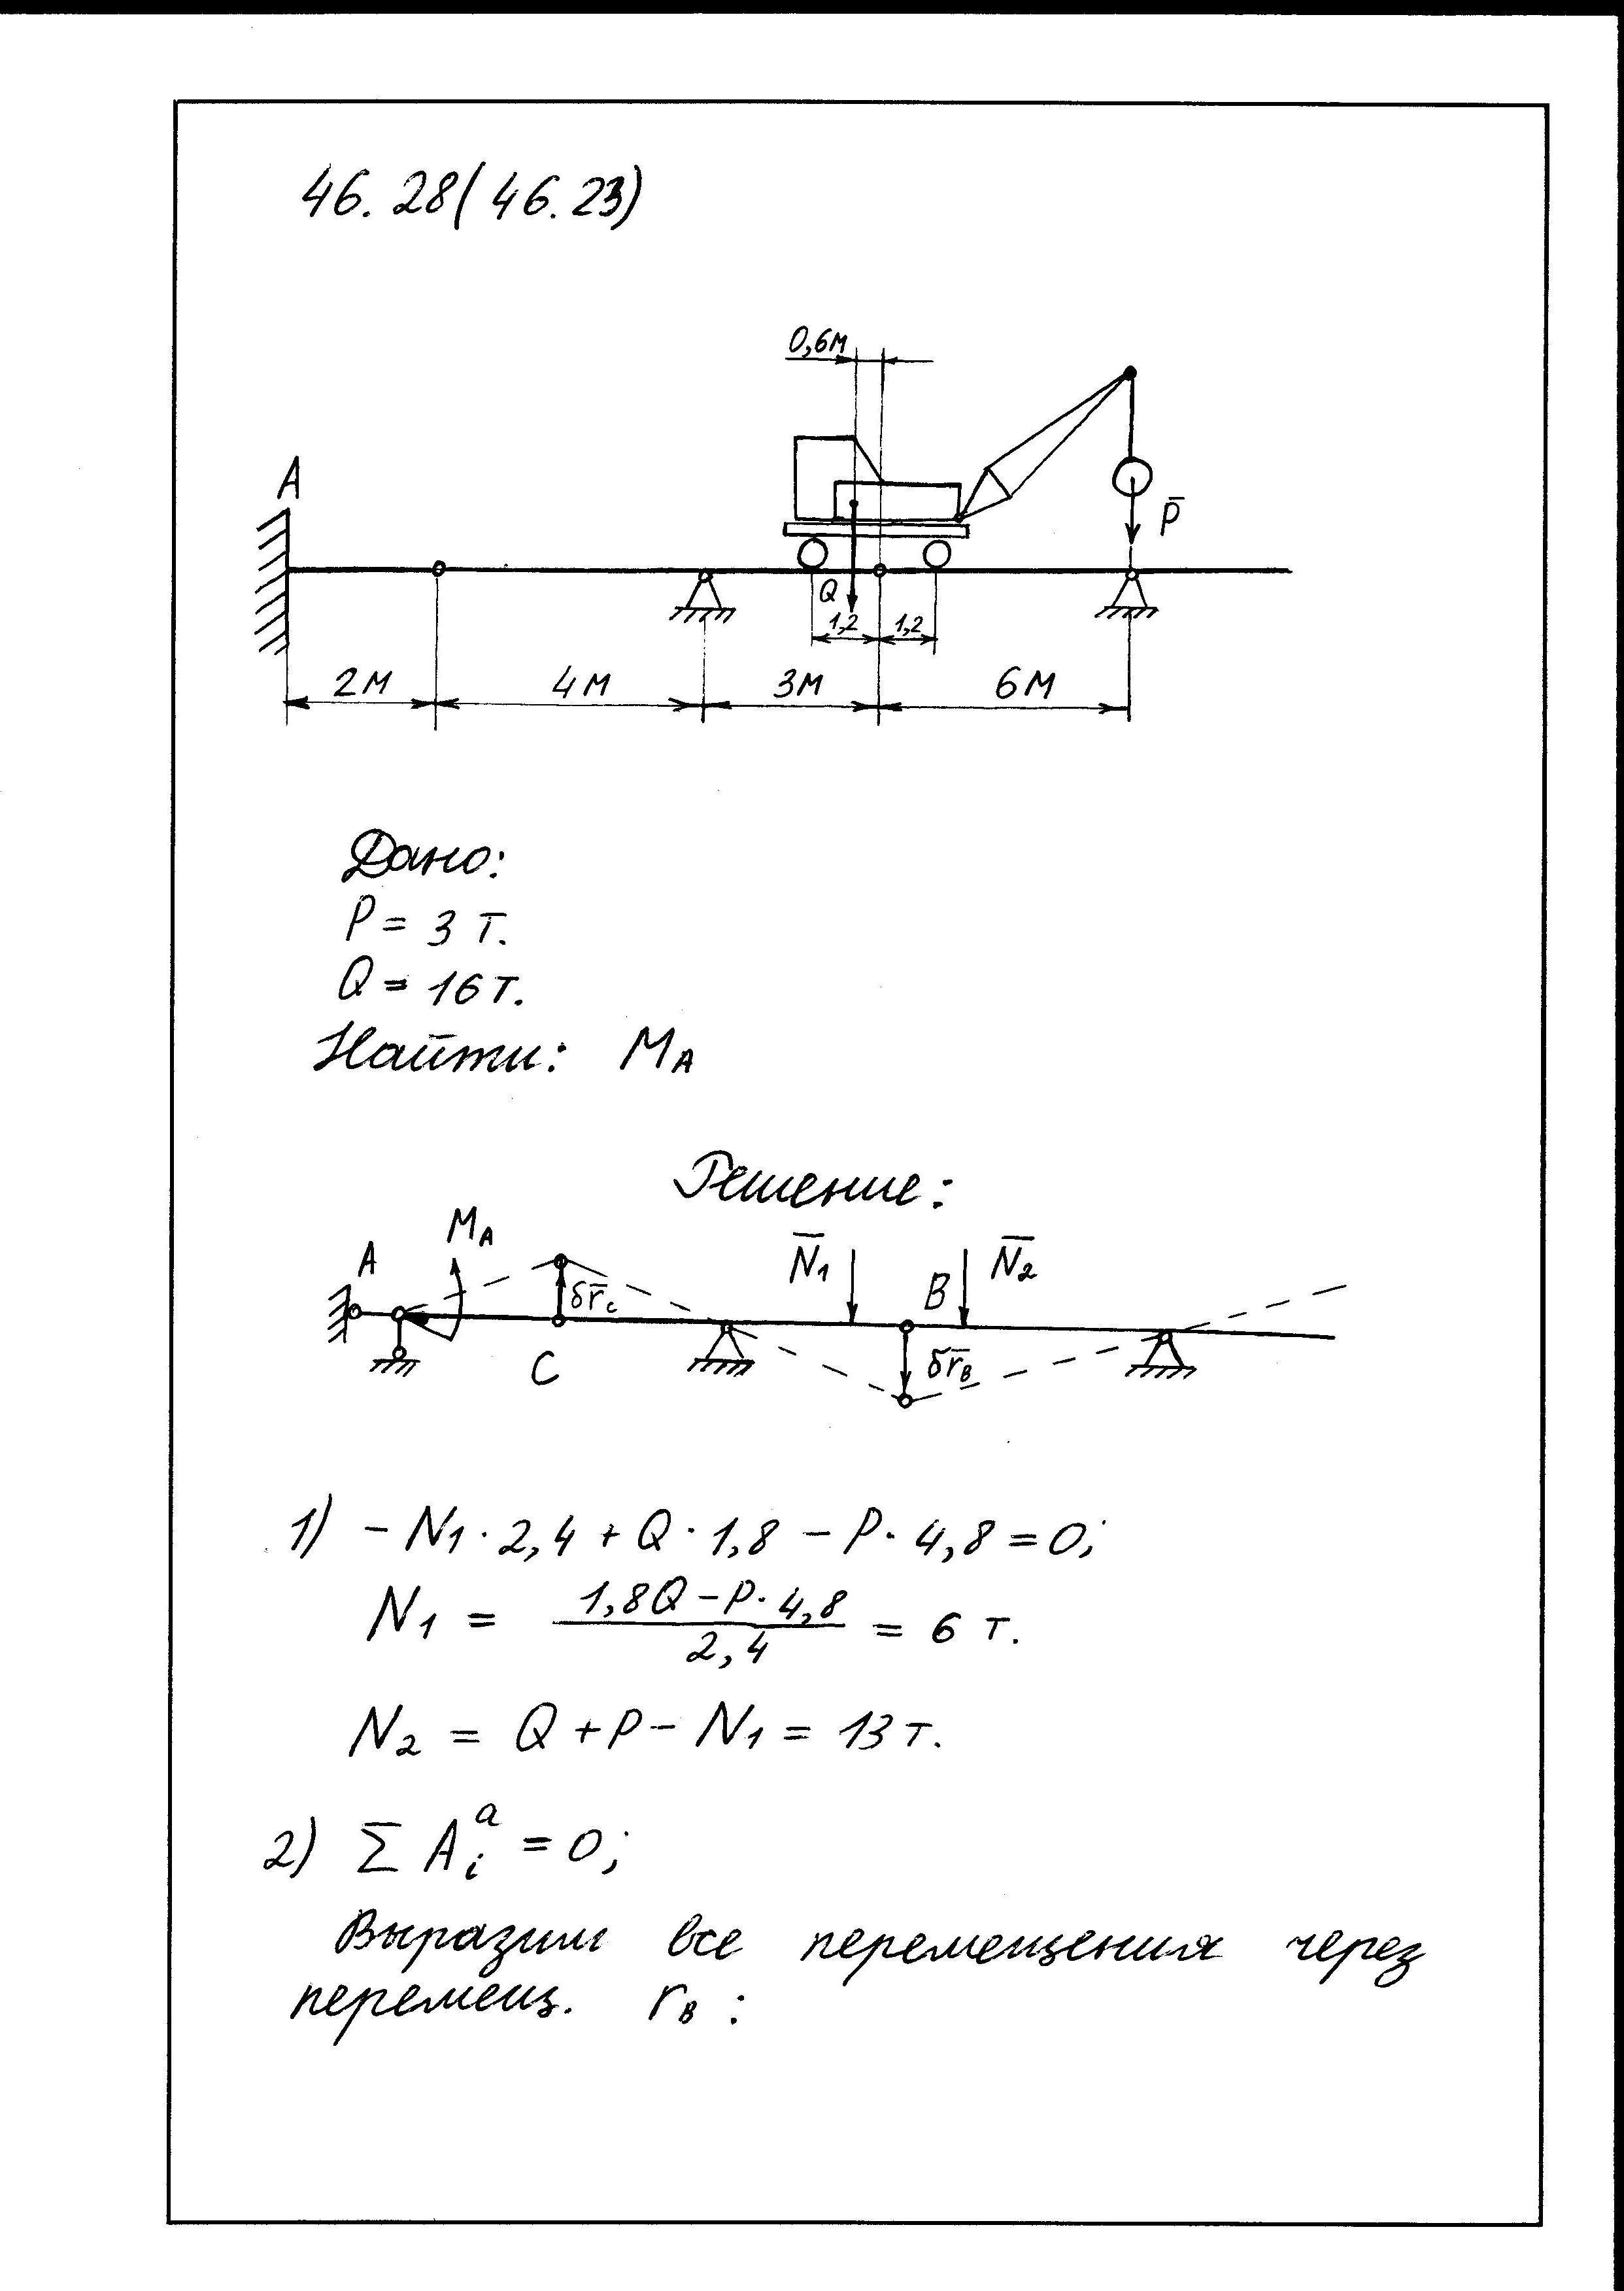 46.28(46.23)
0,6м
A
P̄
Q
1,2 1,2
2м 4м 3м 6м
Дано:
P = 3 т.
Q = 16 т.
Найти: M_A
Решение:
M_A
A
N̄₁
B
N̄₂
δr̄_c
C
δr̄_B
1) - N₁ · 2,4 + Q · 1,8 - P · 4,8 = 0;
N₁ = (1,8Q - P · 4,8) / 2,4 = 6 т.
N₂ = Q + P - N₁ = 13 т.
2) Σ A_i^a = 0;
Выразим все перемещения через
перемещ. r_B :